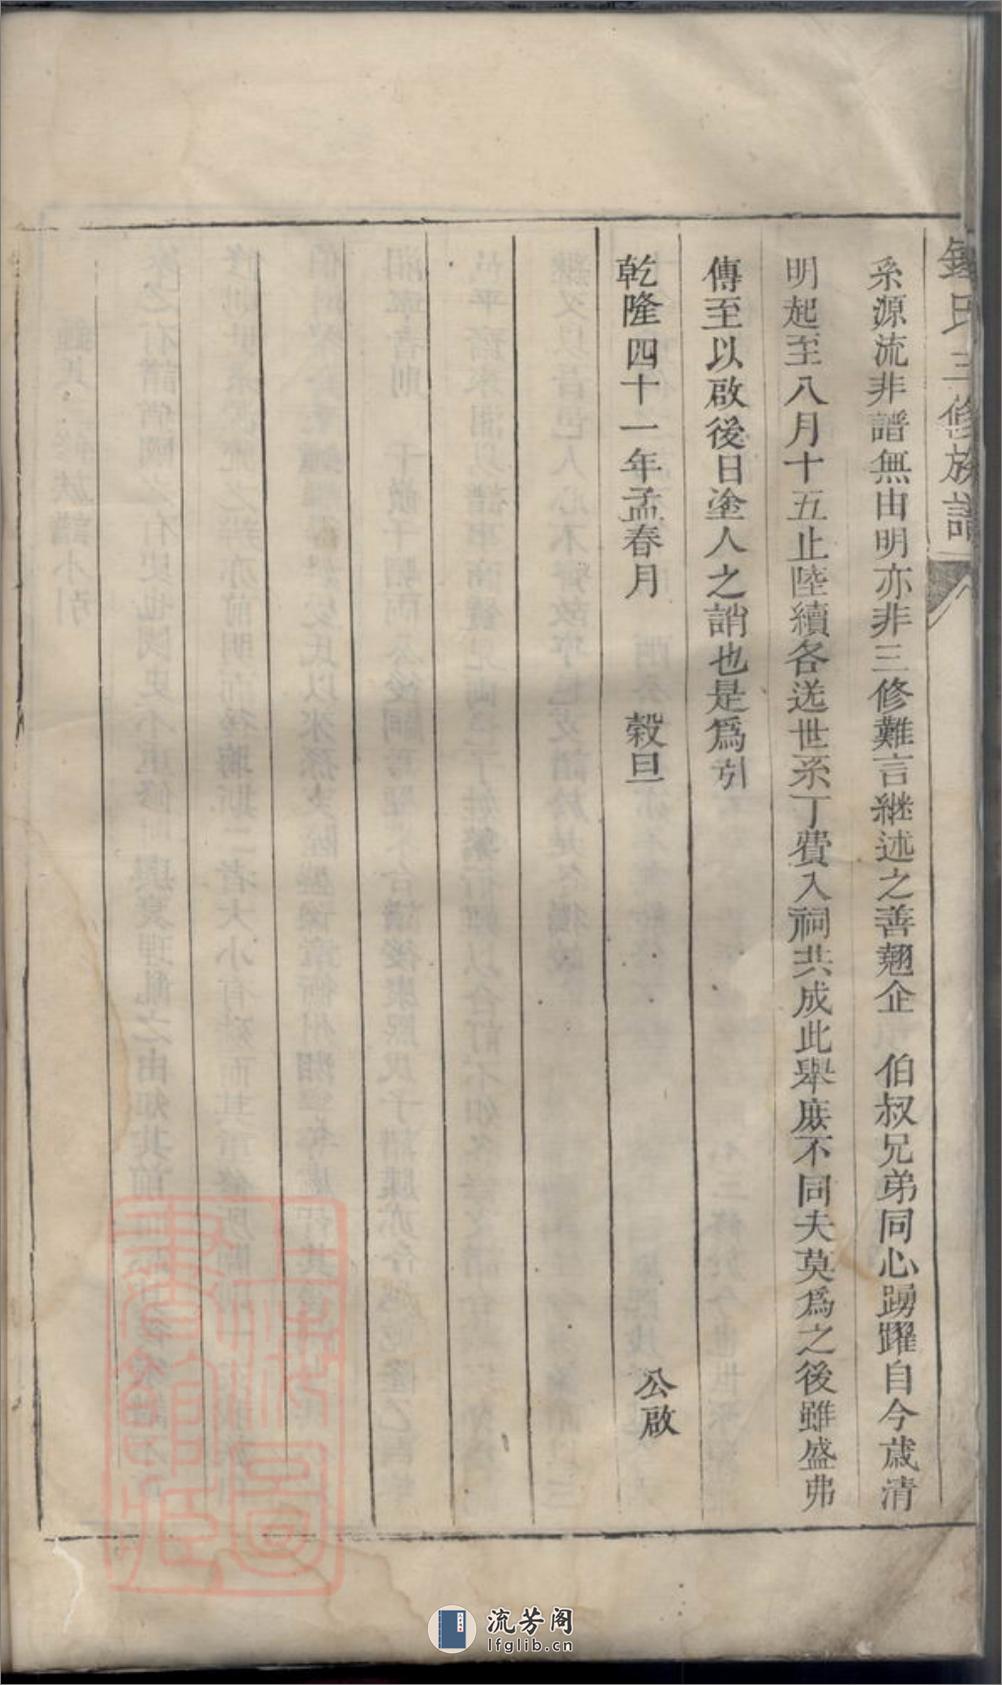 氏三修族譜
系源流非譜無由明亦非三修難言継述之善翹企　伯叔兄弟同心踴躍自今歲清
明起至八月十五止陸續各送世系丁費入祠共成此舉庶不同夫莫爲之後雖盛弗
傳至以啟後日塗人之誚也是爲引
乾隆四十一年孟春月　穀旦　公啟
上海圖書館藏
流芳阁
lfglib.cn